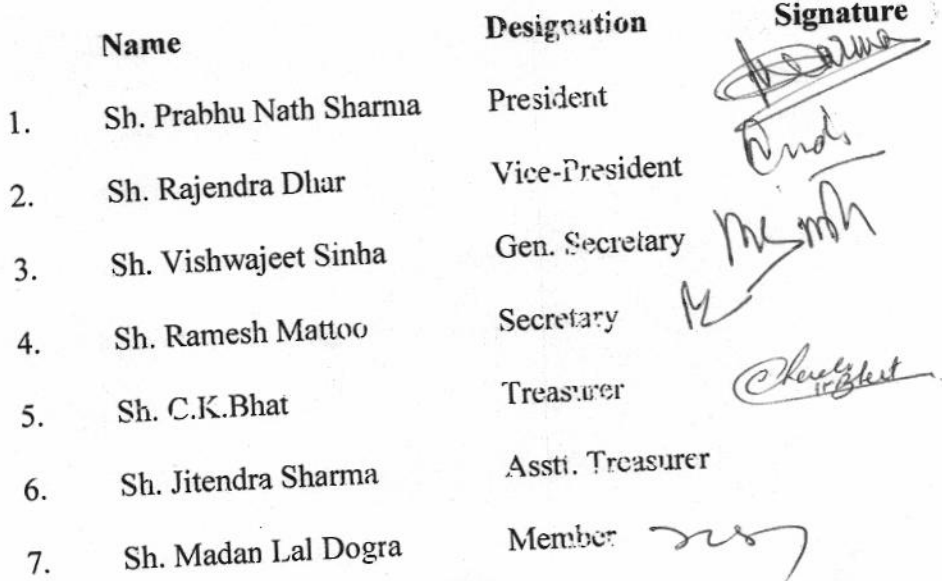 Name Designation Signature
1. Sh. Prabhu Nath Sharma President
2. Sh. Rajendra Dhar Vice-President
3. Sh. Vishwajeet Sinha Gen. Secretary
4. Sh. Ramesh Mattoo Secretary
5. Sh. C.K.Bhat Treasurer
6. Sh. Jitendra Sharma Asstt. Treasurer
7. Sh. Madan Lal Dogra Member